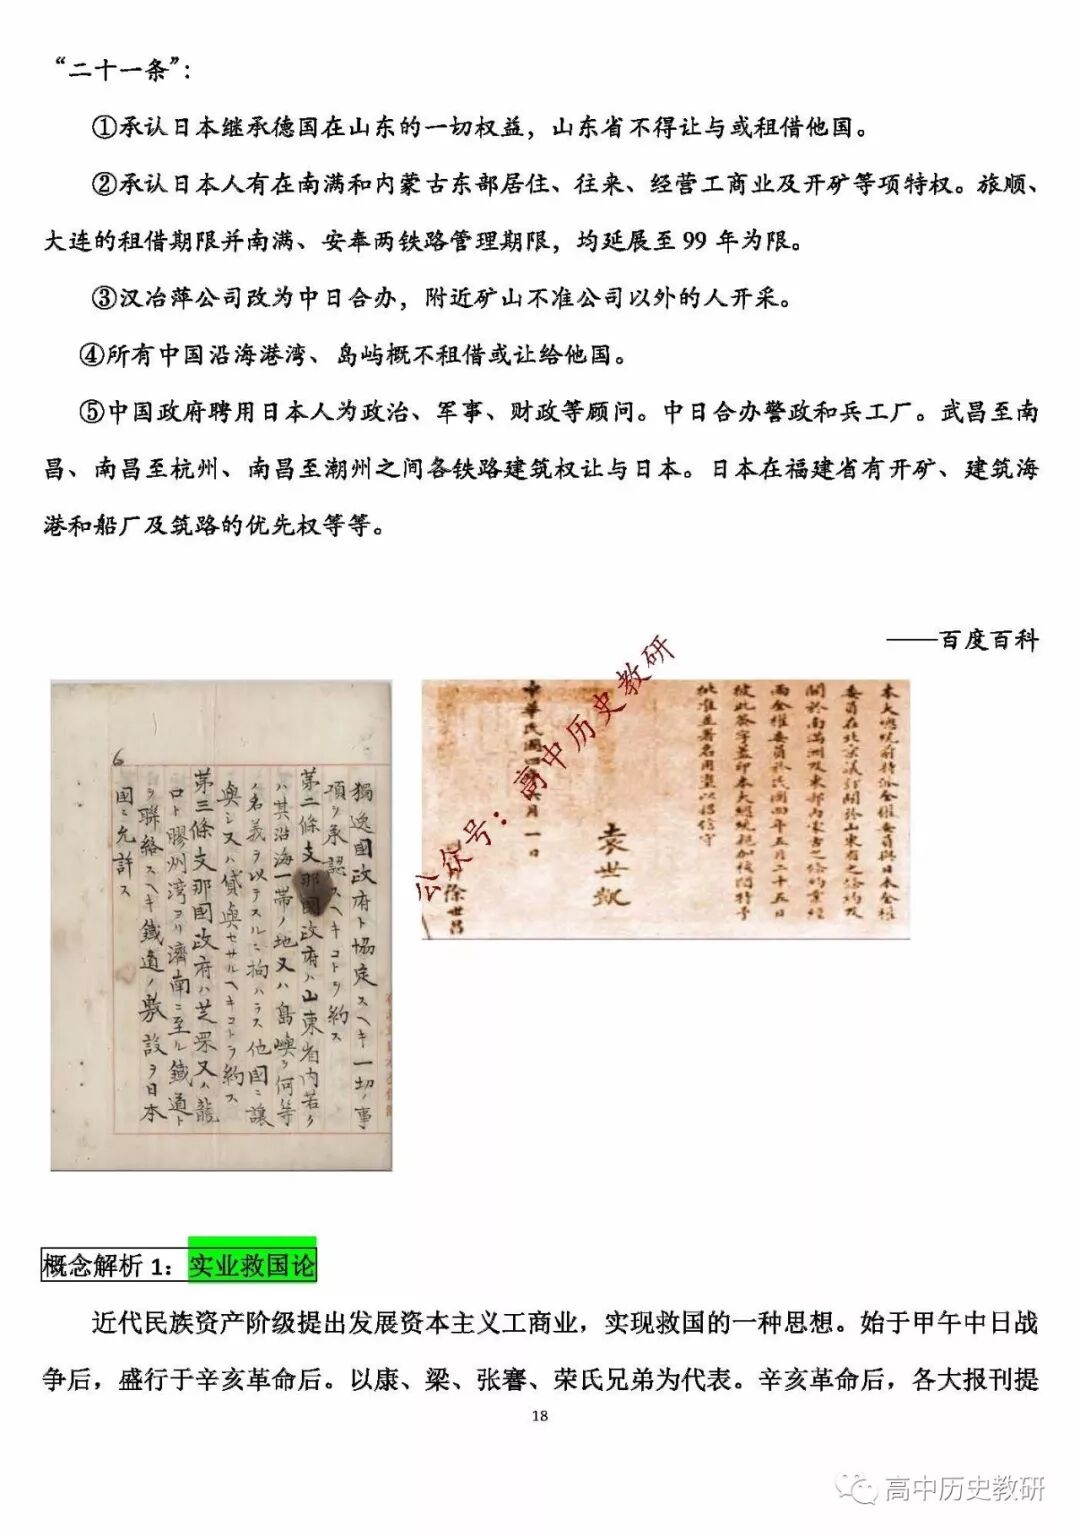 “二十一条”：
①承认日本继承德国在山东的一切权益，山东省不得让与或租借他国。
②承认日本人有在南满和内蒙古东部居住、往来、经营工商业及开矿等项特权。旅顺、
大连的租借期限并南满、安奉两铁路管理期限，均延展至 99 年为限。
③汉冶萍公司改为中日合办，附近矿山不准公司以外的人开采。
④所有中国沿海港湾、岛屿概不租借或让给他国。
⑤中国政府聘用日本人为政治、军事、财政等顾问。中日合办警政和兵工厂。武昌至南
昌、南昌至杭州、南昌至潮州之间各铁路建筑权让与日本。日本在福建省有开矿、建筑海
港和船厂及筑路的优先权等等。
——百度百科
6
獨逸國政府ト協定スヘキ一切ノ事
項ヲ承認スヘキコトヲ約ス
第二條支那國政府ハ山東省内若ク
ハ其沿海一帶ノ地又ハ島嶼ヲ何等
ノ名義ヲ以テスルニ拘ハラス他國ニ讓
與シ又ハ貸與セサルヘキコトヲ約ス
第三條支那國政府ハ芝罘又ハ龍
口ト膠州湾ヨリ濟南ニ至ル鐵道ト
ヲ聯絡スヘキ鐵道ノ敷設ヲ日本
國ニ允許ス
本大總統前特派全權委員與日本全權
委員在北京議訂關於山東省之條約及
關於南滿洲及東部內蒙古之條約業經
兩全權委員於民國四年五月二十五日
彼此簽字蓋印本大總統親加核閱特予
批准並署名用璽以昭信守
袁世凱
中華民國四年六月一日
徐世昌
公众号：高中历史教研
概念解析 1：实业救国论
近代民族资产阶级提出发展资本主义工商业，实现救国的一种思想。始于甲午中日战
争后，盛行于辛亥革命后。以康、梁、张謇、荣氏兄弟为代表。辛亥革命后，各大报刊提
18
高中历史教研